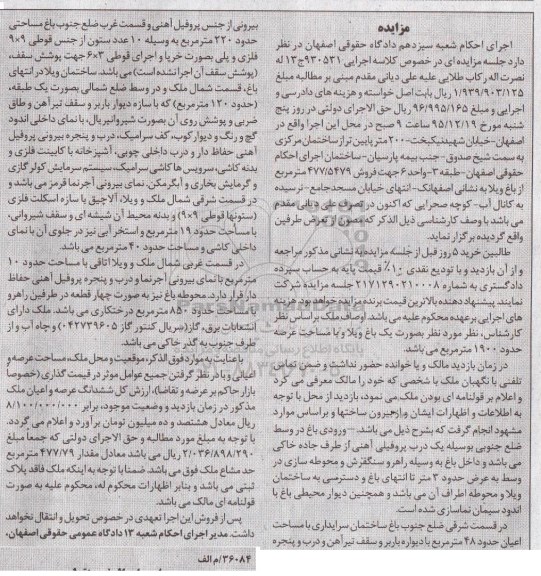 مزایده
اجرای احکام شعبه سیزدهم دادگاه حقوقی اصفهان در نظر
دارد جلسه مزایده ای در خصوص کلاسه اجرایی ۹۳۰۵۳۱ج۱۳ له
نصرت اله رکاب طلایی علیه علی دیانی مقدم مبنی بر مطالبه مبلغ
۱/۹۳۹/۹۰۳/۱۲۵ ریال بابت اصل خواسته و هزینه های دادرسی و
اجرایی و مبلغ ۹۶/۹۹۵/۱۶۵ ریال حق الاجرای دولتی در روز پنج
شنبه مورخ ۹۵/۱۲/۱۹ ساعت ۹ صبح در محل این اجرا واقع در
اصفهان-خیابان شهیدنیکبخت-۲۰۰متر پایین تر از ساختمان مرکزی
به سمت شیخ صدوق-جنب بیمه پارسیان-ساختمان اجرای احکام
حقوقی اصفهان-طبقه ۳-واحد ۶ جهت فروش ۴۷۷/۵۴۷۹ مترمربع
از باغ ویلا به نشانی اصفهانک-انتهای خیابان مسجدجامع-نرسیده
به کانال آب-کوچه صحرایی که اکنون در تصرف علی دیانی مقدم
می باشد با وصف کارشناسی ذیل الذکر که مصون از تعرض طرفین
واقع گردیده برگزار نماید.
طالبین خرید ۵ روز قبل از جلسه مزایده به نشانی مذکور مراجعه
و از آن بازدید و با تودیع نقدی ۱۰٪ قیمت پایه به حساب سپرده
دادگستری به شماره ۲۱۷۱۲۹۰۲۱۰۰۰۸ در جلسه مزایده شرکت
نمایند. پیشنهاددهنده بالاترین قیمت برنده مزایده خواهد بود هزینه
های اجرایی برعهده محکوم علیه می باشد. اوصاف ملک براساس نظر
کارشناس، نظر مورد نظر بصورت یک باغ ویلا و با مساحت عرصه
حدود ۱۹۰۰ مترمربع می باشد.
در زمان بازدید مالک و یا خوانده حضور نداشته و ضمن تماس
تلفنی با نگهبان ملک با شخصی که خود را مالک معرفی می کرد
و اعلام بر قولنامه ای بودن ملک می نمود، بازدید از محل با توجه
به اطلاعات و اظهارات ایشان و ازبیرون ساختها و براساس موارد
مشهود انجام گرفت که بشرح ذیل می باشد-ورودی باغ در وسط
ضلع جنوبی بوسیله یک درب پروفیلی آهنی از طرف جاده خاکی
می باشد و داخل باغ به وسیله راهرو سنگفرش و محوطه سازی در
وسط به عرض حدود ۳ متر تا انتهای باغ و دسترسی به ساختمان
ویلا و محوطه اطراف آن می باشد و همچنین دیوار محیطی باغ با
اندود سیمان نماسازی شده است.
در قسمت شرقی ضلع جنوب باغ ساختمان سرایداری با مساحت
اعیان حدود ۴۸ مترمربع با دیواره باربر و سقف تیرآهن و درب و پنجره
بیرونی از جنس پروفیل آهنی و قسمت غرب ضلع جنوب باغ مساحتی
حدود ۲۲۰ مترمربع به وسیله ۱۰ عدد ستون از جنس قوطی ۹×۹
فلزی و پلی بصورت خرپا و اجرای قوطی ۳×۶ جهت پوشش سقف،
(پوشش سقف آن اجرا نشده است) می باشد. ساختمان ویلا در انتهای
باغ، قسمت شمال ملک و در وسط ضلع شمالی بصورت یک طبقه،
(حدود ۱۲۰ مترمربع) که با سازه دیوار باربر و سقف تیرآهن و طاق
ضربی و پوشش روی آن بصورت شیروانیریال، با نمای داخلی اندود
گچ و رنگ و دیوار کوب، کف سرامیک، درب و پنجره بیرونی پروفیل
آهنی حفاظ دار و درب داخلی چوبی، آشپزخانه با کابینت فلزی و
بدنه کاشی، سرویس ها کاشی سرامیک، سیستم سرمایش کولر گازی
و گرمایش بخاری و آبگرمکن، نمای بیرونی آجرنما قرمز می باشد و
در قسمت شرقی شمال ملک و ویلا، آلاچیق با سازه اسکلت فلزی
(ستونها قوطی ۹×۹) و بدنه محیط آن شیشه ای و سقف شیروانی،
با مساحت حدود ۱۹ مترمربع و استخر آبی نیز در جلوی آن با نمای
داخلی کاشی و مساحت حدود ۴۰ مترمربع می باشد.
در قسمت غربی شمال ملک و ویلا اتاقی با مساحت حدود ۱۰
مترمربع با نمای بیرونی آجرنما و درب و پنجره پروفیل آهنی حفاظ
دار قرار دارد. محوطه باغ نیز به صورت چهار قطعه در طرفین راهرو
با مساحت حدود ۸۵۰ مترمربع درختکاری می باشد. ملک دارای
انشعابات برق، گاز(سریال کنتور گاز ۰۴۲۷۳۹۶۰۵) و چاه آب و از
طرف جنوب به گذر خاکی می باشد.
با عنایت به موارد فوق الذکر، موقعیت و محل ملک، مساحت عرصه و
اعیانی و با در نظر گرفتن جمیع عوامل موثر در قیمت گذاری (خصوصاً
بازار حاکم بر عرضه و تقاضا)، ارزش کل ششدانگ عرصه و اعیان ملک
مذکور در زمان بازدید و وضعیت موجود، برابر ۸/۱۰۰/۰۰۰/۰۰۰
ریال معادل هشتصد و ده میلیون تومان برآورد و اعلام می گردد.
با توجه به مبلغ مورد مطالبه و حق الاجرای دولتی که جمعاً مبلغ
۲/۰۳۶/۸۹۸/۲۹۰ ریال می باشد معادل مقدار ۴۷۷/۷۹ مترمربع
حد مشاع ملک فوق می باشد. ضمنا با توجه به اینکه ملک فاقد پلاک
ثبتی می باشد و بنابر اظهارات محکوم له، محکوم علیه به صورت
قولنامه ای مالک می باشد.
پس از فروش این اجرا تعهدی در خصوص تحویل و انتقال نخواهد
داشت. مدیر اجرای احکام شعبه ۱۳ دادگاه عمومی حقوقی اصفهان.
۳۶۰۸۴/م الف